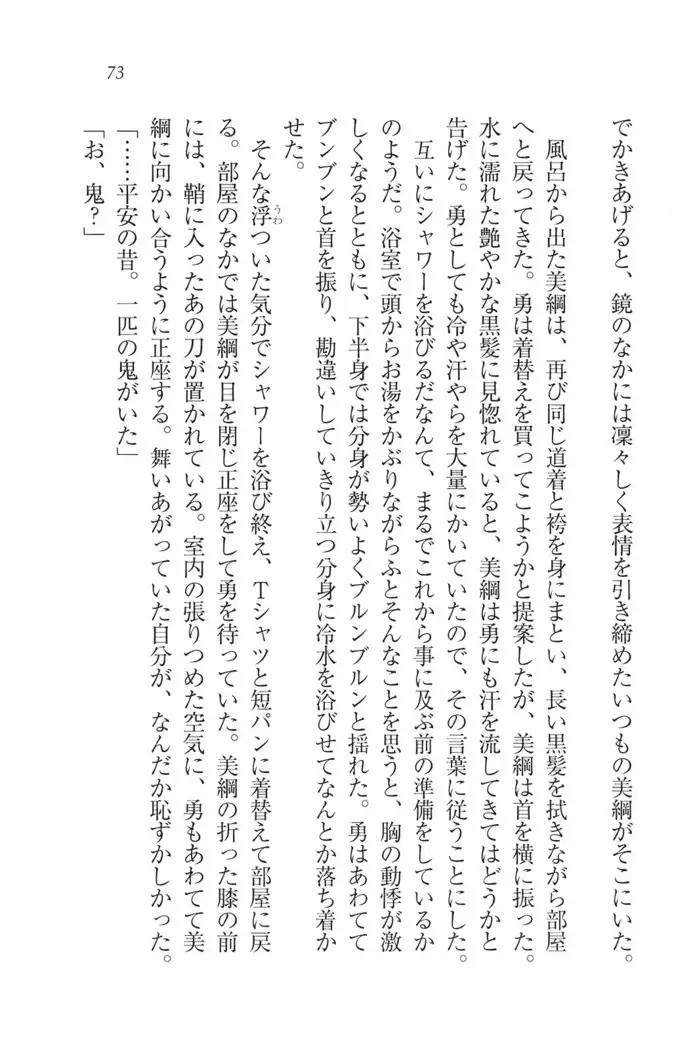 73
でかきあげると、鏡のなかには凜々しく表情を引き締めたいつもの美綱がそこにいた。
風呂から出た美綱は、再び同じ道着と袴を身にまとい、長い黒髪を拭きながら部屋
へと戻ってきた。勇は着替えを買ってこようかと提案したが、美綱は首を横に振った。
水に濡れた艶やかな黒髪に見惚れていると、美綱は勇にも汗を流してきてはどうかと
告げた。勇としても冷や汗やらを大量にかいていたので、その言葉に従うことにした。
互いにシャワーを浴びるだなんて、まるでこれから事に及ぶ前の準備をしているか
のようだ。浴室で頭からお湯をかぶりながらふとそんなことを思うと、胸の動悸が激
しくなるとともに、下半身では分身が勢いよくブルンブルンと揺れた。勇はあわてて
ブンブンと首を振り、勘違いしていきり立つ分身に冷水を浴びせてなんとか落ち着か
せた。
そんな浮うわついた気分でシャワーを浴び終え、Tシャツと短パンに着替えて部屋に戻
る。部屋のなかでは美綱が目を閉じ正座をして勇を待っていた。美綱の折った膝の前
には、鞘に入ったあの刀が置かれている。室内の張りつめた空気に、勇もあわてて美
綱に向かい合うように正座する。舞いあがっていた自分が、なんだか恥ずかしかった。
「……平安の昔。一匹の鬼がいた」
「お、鬼?」